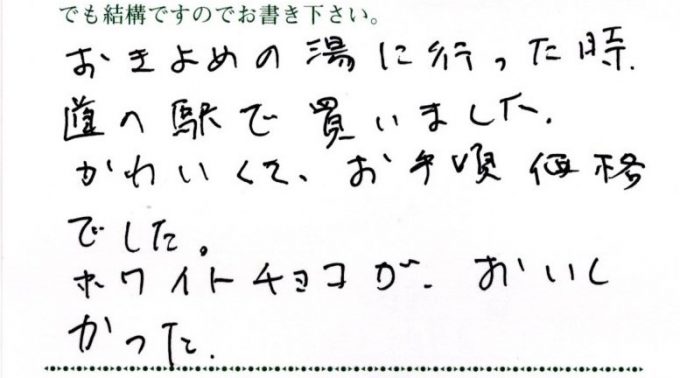 でも結構ですのでお書き下さい。
おきよめの湯に行った時、
道の駅で買いました。
かわいくて、お手頃価格
でした。
ホワイトチョコが、おいし
かった。